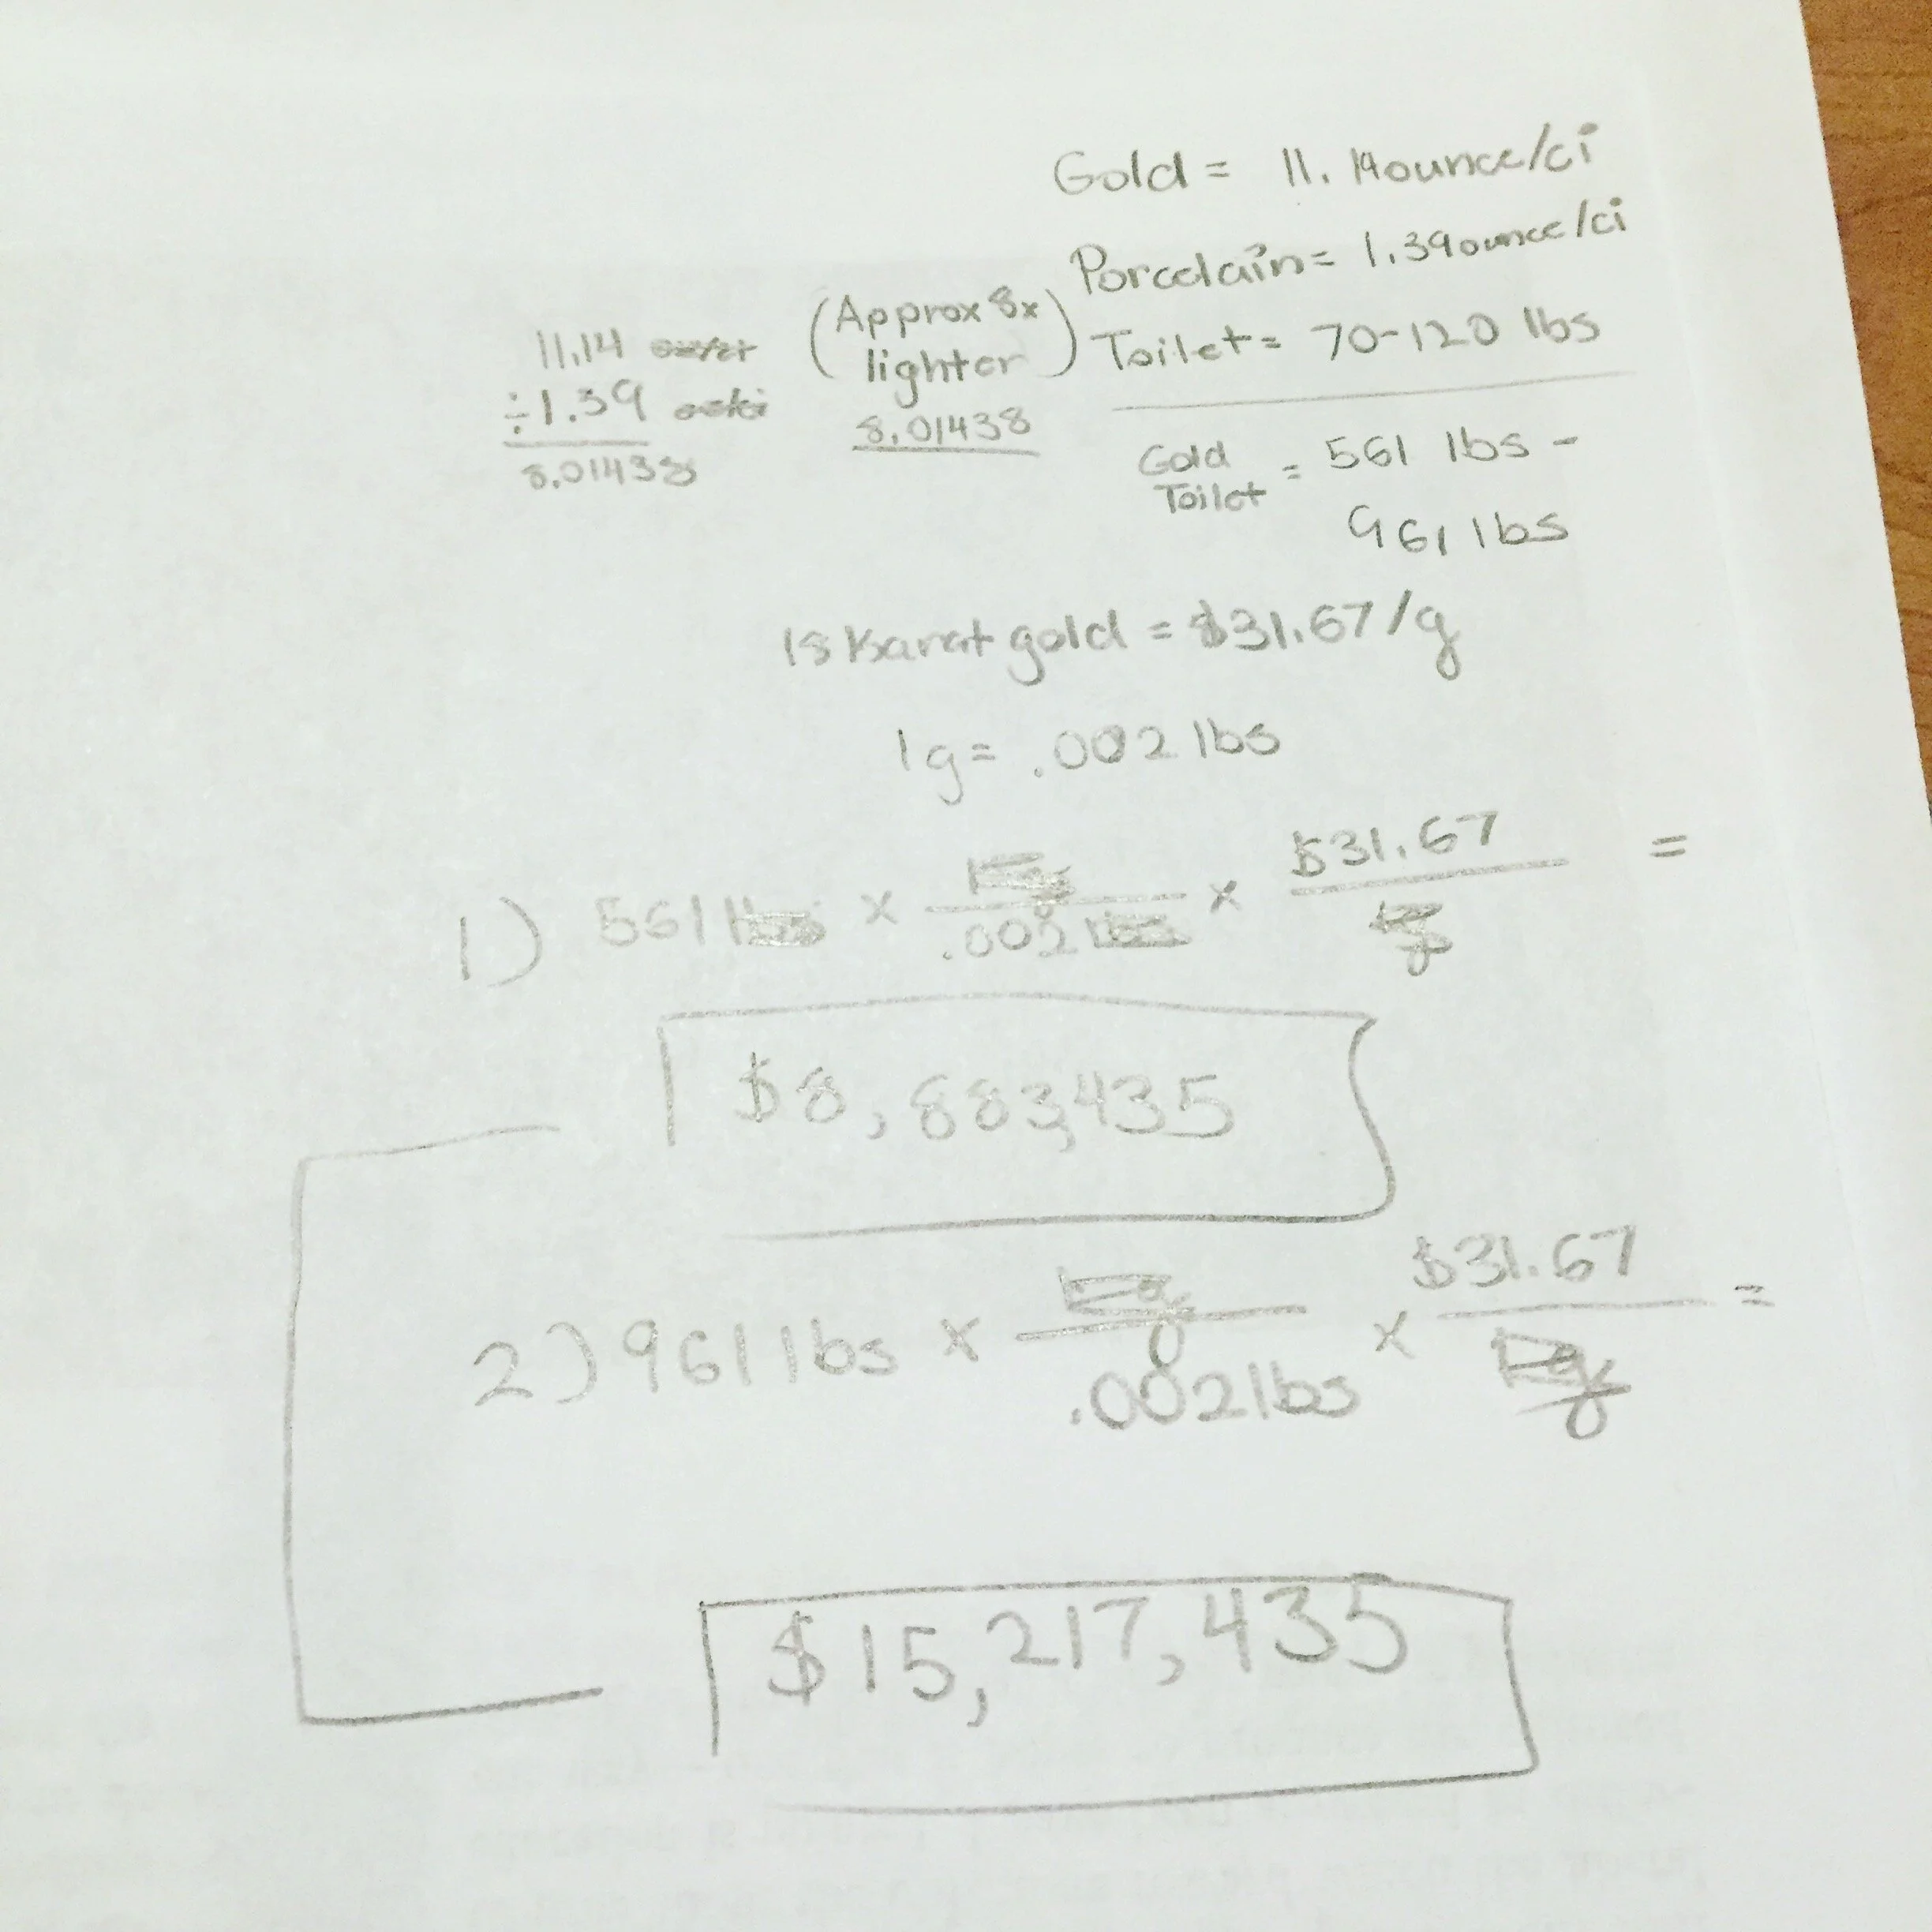 Gold = 11.14ounce/ci
Porcelain = 1.39ounce/ci
Toilet = 70-120 lbs
(Approx 8x
lighter)
8.01438
11.14
÷1.39
8.01438
Gold
Toilet = 561 lbs -
961 lbs
18 Karat gold = $31.67/g
1g = .002 lbs
1) 561 lbs x 1g/.002 lbs x $31.67/1g =
$8,883,435
2) 961 lbs x 1g/.002 lbs x $31.67/1g =
$15,217,435